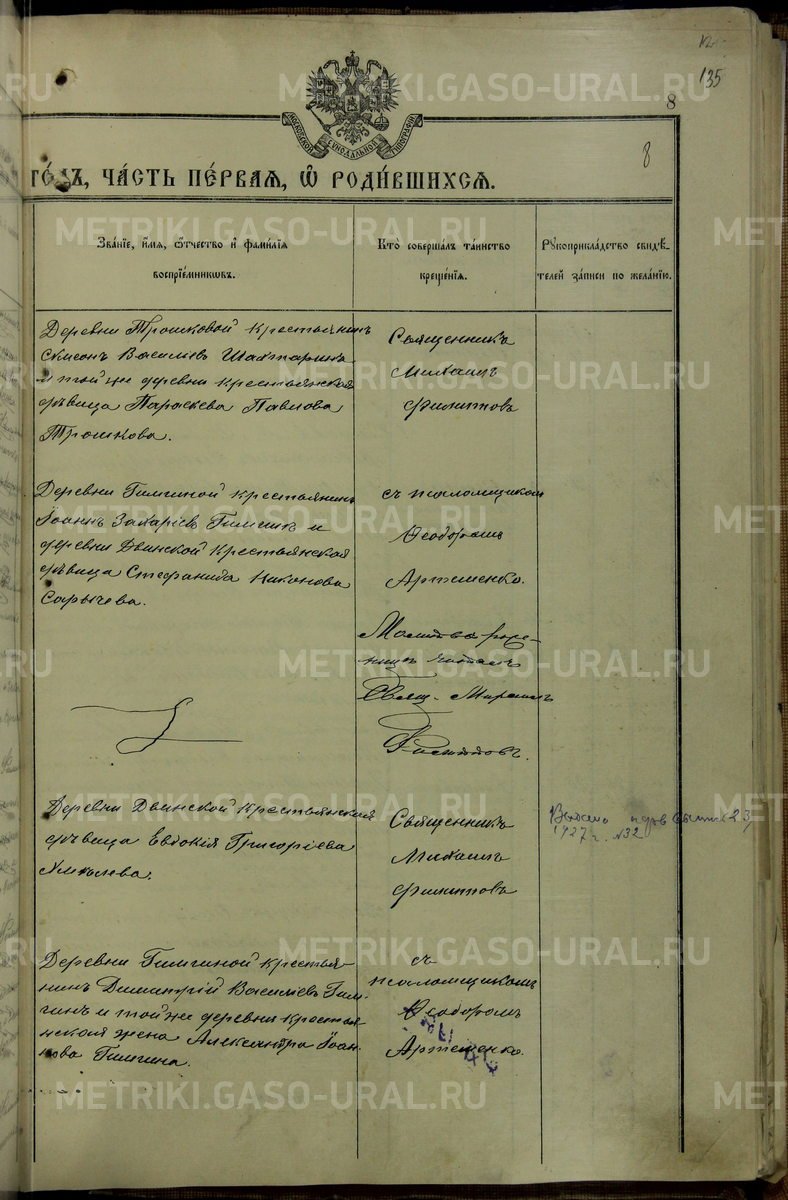 135
8
8
МОСКОВСКОЙ СУНОДАЛЬНОЙ ТИПОГРАФІИ
ГО́ДЪ, ЧА́СТЬ ПЕ́РВАЯ, Ѽ РОДИ́ВШИХСЯ.
Зва́нїе, и҆́мя, ѻ҆́тчество и҆ фами́лїя
воспрїе́мниковъ.
Кто̀ соверша́лъ та́инство
креще́нїя.
Рꙋкоприкла́дство свидѣ́-
телей за́писи по жела́нїю.
Деревни Трошковой крестьянинъ
Сѵмеонъ Василіевъ
и той же деревни крестьянская
дѣвица Параскева Павлова
Трошкова.
Священникъ
Михаилъ
Филиповъ
Деревни Гилигиной крестьянинъ
Іоаннъ Захаріевъ и
деревни Двинской крестьянская
дѣвица Стефанида Никонова
Сарычева.
съ псаломщикомъ
Ѳеодоромъ
Артеменко.
Молитва роже-
ницѣ читалъ
Свящ. Михаилъ
Филиповъ.
Деревни Двинской крестьянская
дѣвица Евдокія Григоріева
Священникъ
Михаилъ
Филиповъ
1927 г. №32
Деревни Гилигиной крестья-
нинъ Димитрій Василіевъ Гили-
гинъ и той же деревни крестья-
нская жена Александра Іоан-
нова Гилигина.
съ
псаломщикомъ
Ѳеодоромъ
Артеменко.
METRIKI.GASO-URAL.RU